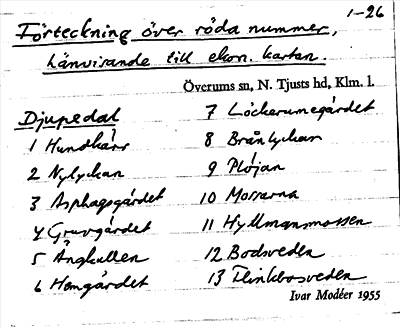 1-26
Förteckning över röda nummer,
hänvisande till ekon. kartan.
Överums sn, N. Tjusts hd, Klm. l.
Djupedal
1 Hundkärr
2 Nylyckan
3 Asphagsgärdet
4 Gruvgärdet
5 Ängkullen
6 Homgärdet
7 Löckerumegärdet
8 Brånlyckan
9 Plöjan
10 Mossarna
11 Hyllmansmossen
12 Bodsveden
13 Flinkbosveden
Ivar Modéer 1955